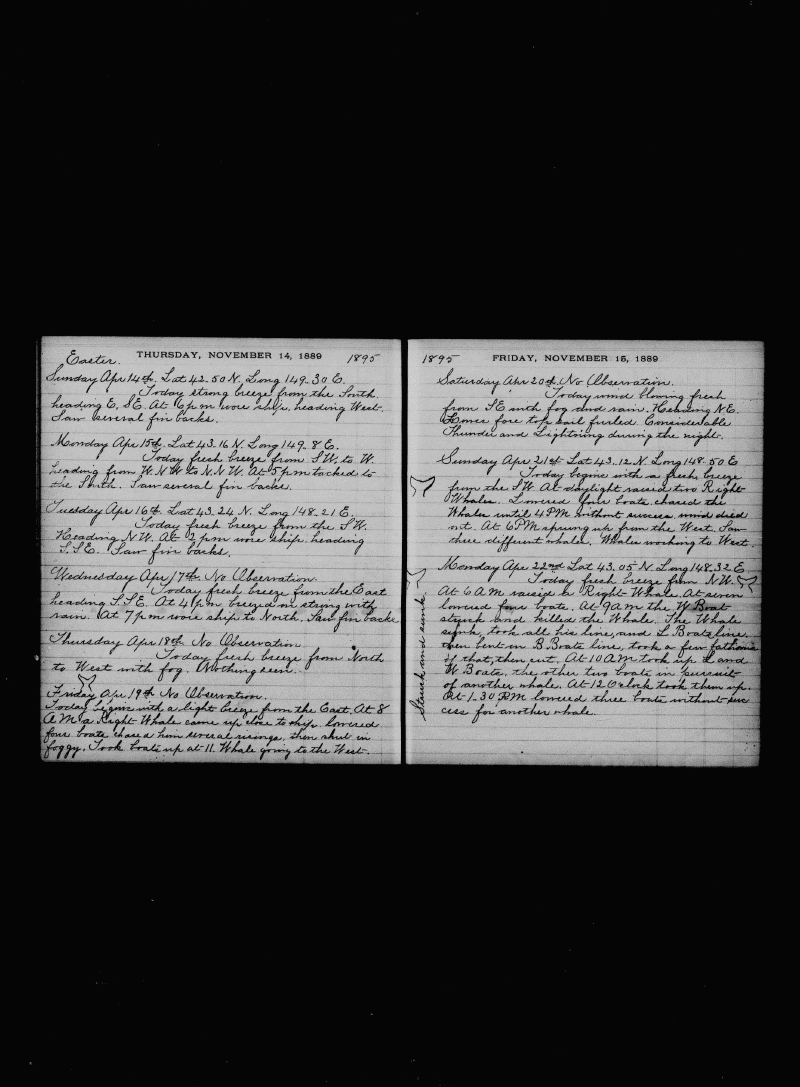 Easter. THURSDAY, NOVEMBER 14, 1889 1895
Sunday Apr 14th. Lat 42-50 N. Long 149-30 E.
Today strong breeze from the South.
heading E, SE. At 6 pm wore ship, heading West.
Saw several fin backs.
Monday Apr 15th. Lat 43.16 N. Long 149-8 E.
Today fresh breeze from SW, to W.
heading from W.N.W to N.N.W. At 5 pm tacked to
the South. Saw several fin backs.
Tuesday Apr 16th. Lat 43.24 N. Long 148-21 E.
Today fresh breeze from the SW.
Heading NW. At 2 pm wore ship heading
S.S.E. Saw fin backs.
Wednesday Apr 17th. No Observation.
Today fresh breeze from the East
heading S.S.E. At 4 pm breezed on strong with
rain. At 7 pm wore ship to North. Saw fin backs
Thursday Apr 18th No Observation
Today fresh breeze from North
to West with fog. Nothing seen.
Friday Apr 19th No Observation.
Today begins with a light breeze from the East. At 8
A M a Right Whale came up close to ship. lowered
four boats chased him several risings, then shut in
foggy. Took boats up at 11. Whale going to the West.
1895 FRIDAY, NOVEMBER 15, 1889
Saturday Apr 20th. No Observation.
Today wind blowing fresh
from SE with fog and rain. Heading NE.
Lower fore top sail furled. Considerable
Thunder and Lightning during the night.
Sunday Apr 21st Lat 43.12 N. Long 148-50 E
Today begins with a fresh breeze
from the SW. At daylight raised two Right
Whales. Lowered four boats chased the
Whales until 4 PM without success wind died
out. At 6 PM sprung up from the West. Saw
three different whales. Whales working to West.
Monday Apr 22nd Lat 43.05 N. Long 148.32 E
Today fresh breeze from NW.
At 6 AM raised a Right Whale. At seven
lowered four boats. At 9 am the W Boat
struck and killed the Whale. The Whale
sunk, took all his line, and L Boats line.
then bent on B Boats line, took a few fathoms
of that, then cut. At 10 AM took up L and
W Boats, the other two boats in pursuit
of another whale. At 12 O'clock took them up.
At 1-30 PM lowered three boats without suc
cess for another whale.
Struck and sunk